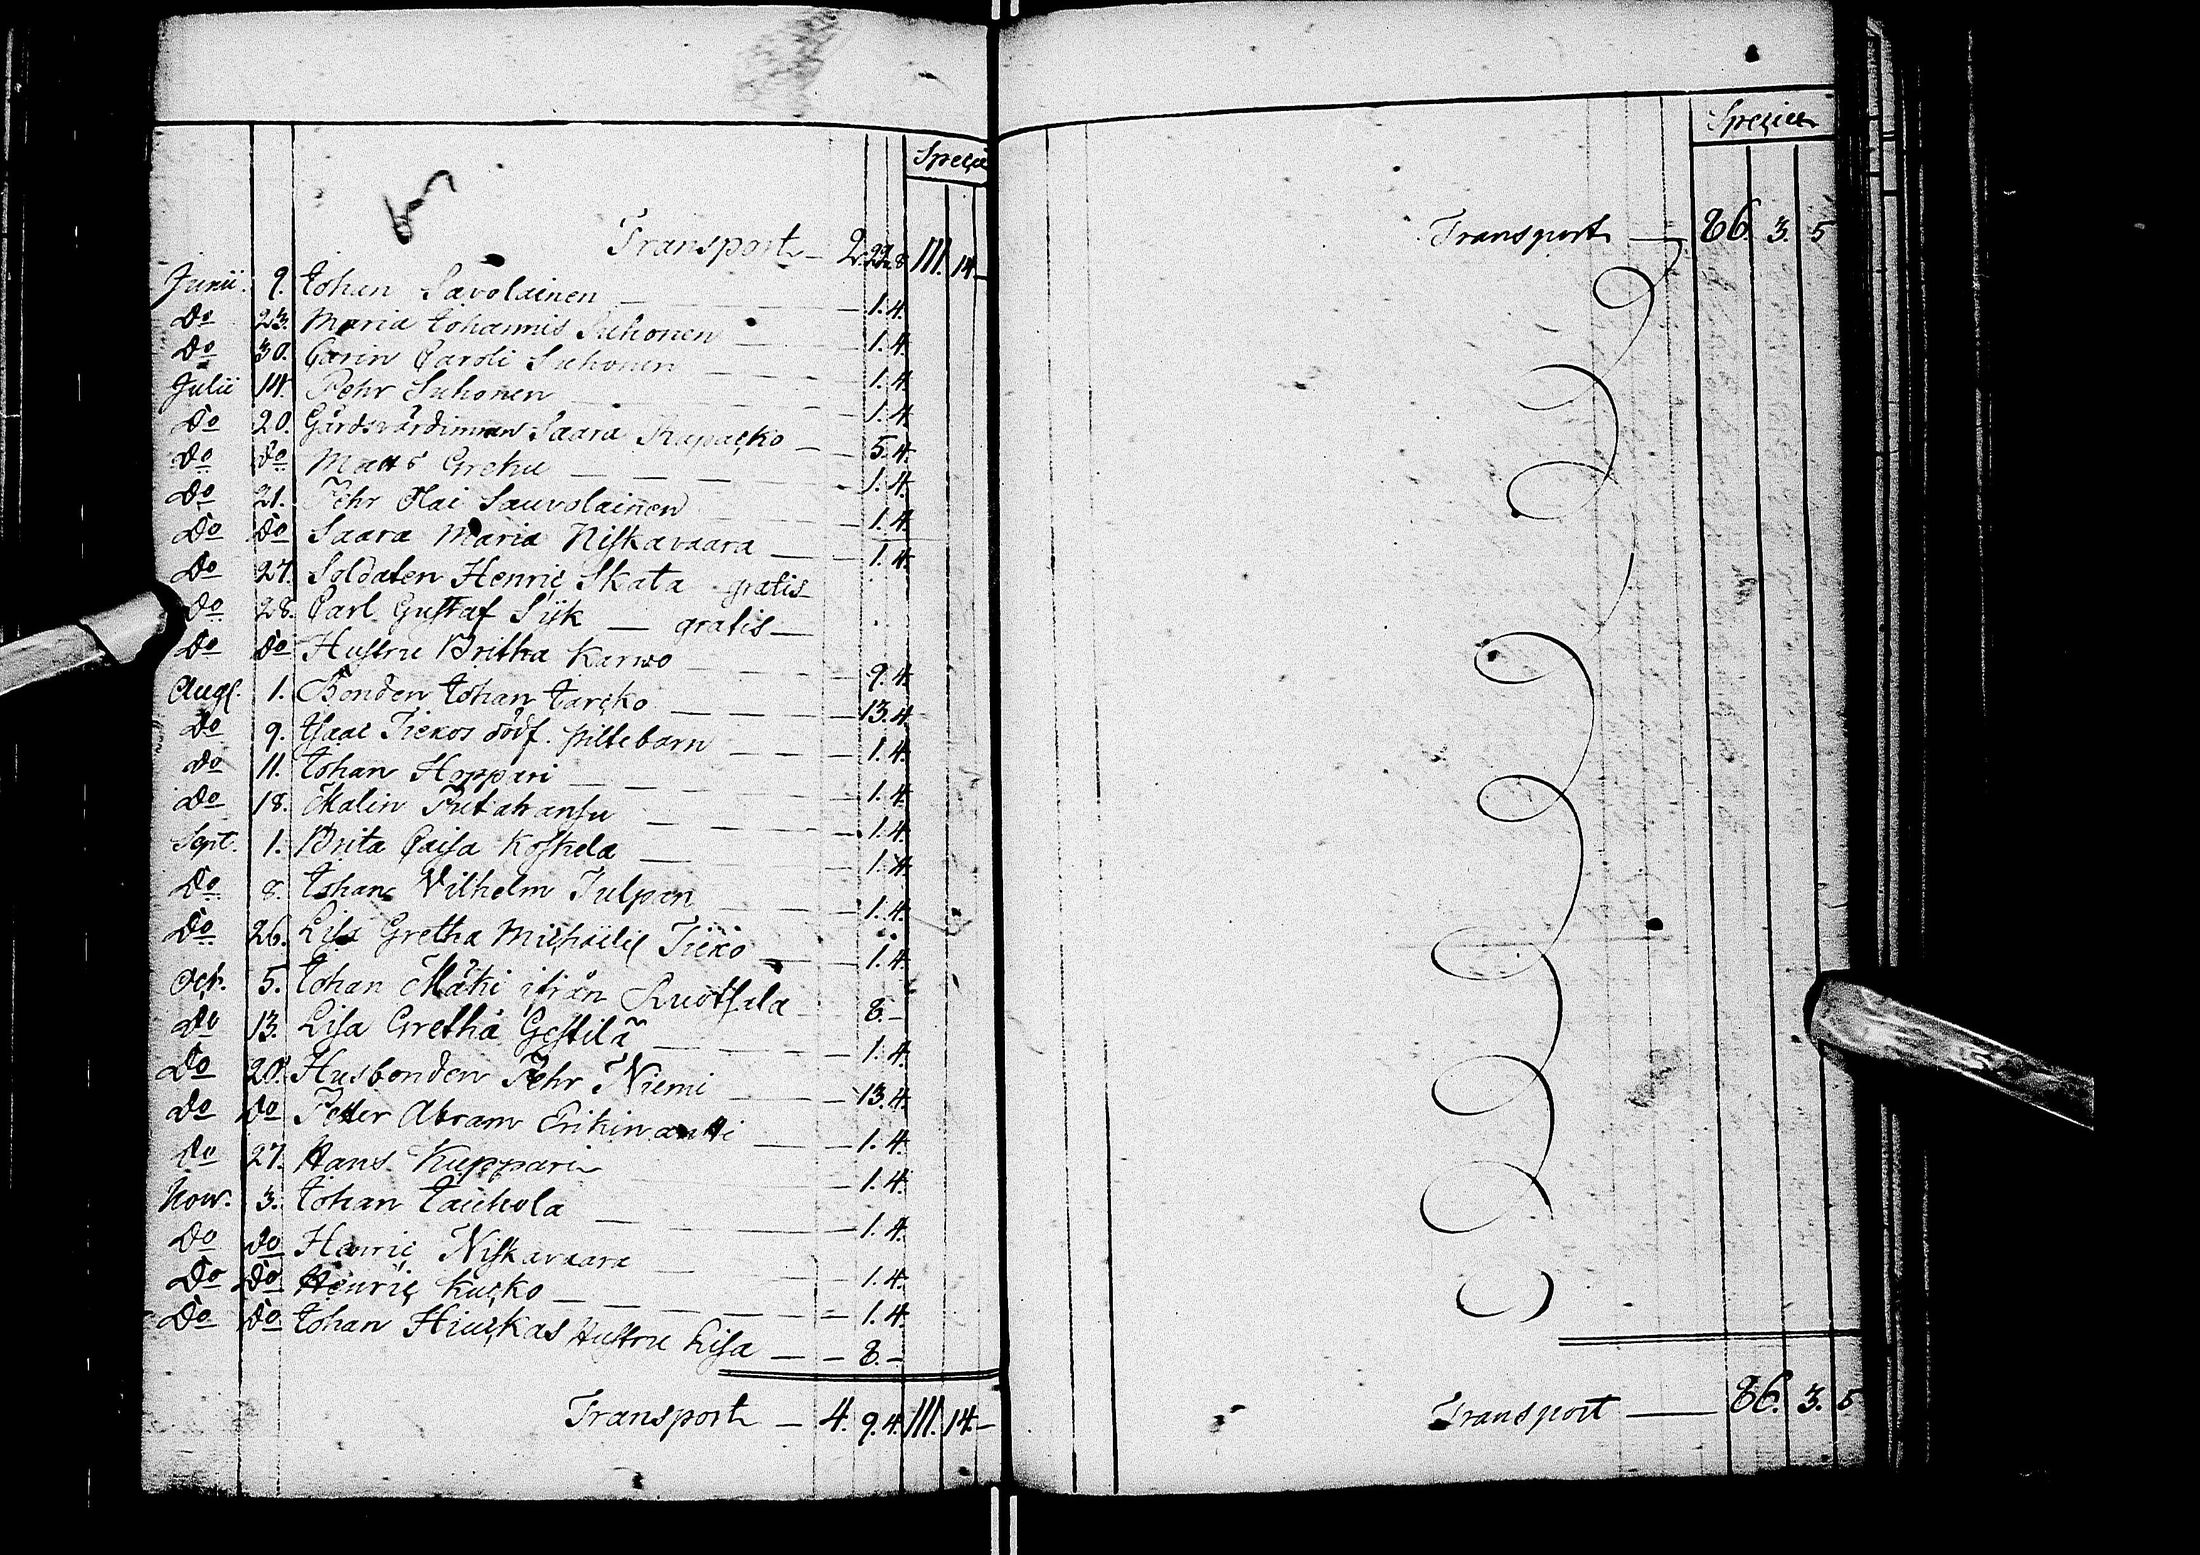 Specie
Transport — 2. 22. 8 111. 14 —
Junii. 9. Johan Savolainen — 1. 4.
Do 23. Maria Johannis Suhonen — 1. 4.
Do 30. Carin Caroli Suhonen — 1. 4.
Julii 14. Pehr Suhonen — 1. 4.
Do 20. Gårdsvärdinnan Saara — 5. 4.
Do Do Matts Greku — 1. 4.
Do 21. Pehr Olai Sauvolainen — 1. 4.
Do Do Saara Maria Niskavaara — 1. 4.
Do 27. Soldaten Henric Skata gratis —
Do 28. Carl Gustaf Sijk — gratis —
Do Do Hustru Britha Karwo — 9. 4.
Aug. 1. Bonden Johan Jarcko — 13. 4.
Do 9. Isaac Piltebarn — 1. 4.
Do 11. Johan Hoppari — 1. 4.
Do 18. Malin — 1. 4.
Sept. 1. Brita Caisa Koskela — 1. 4.
Do 8. Johan Wilhelm Tulpan — 1. 4.
Do 26. Lisa Gretha — 1. 4.
Oct. 5. Johan Mäki ifrån Ruotsala 8. —
Do 13. Lisa Gretha Gestilä — 1. 4.
Do 20. Husbonden Pehr Niemi — 13. 4.
Do Do Petter Abram Erikinantti — 1. 4.
Do 27. Hans Kuppari — 1. 4.
Nov. 3. Johan — 1. 4.
Do Do Henric Niskavaara — 1. 4.
Do Do Henric Kucko — 1. 4.
Do Do Johan Hiuckas Hustru Lisa — 8. —
Transport — 4. 9. 4. 111. 14 —
Specie
Transport — 86. 3. 5
Transport — 86. 3. 5